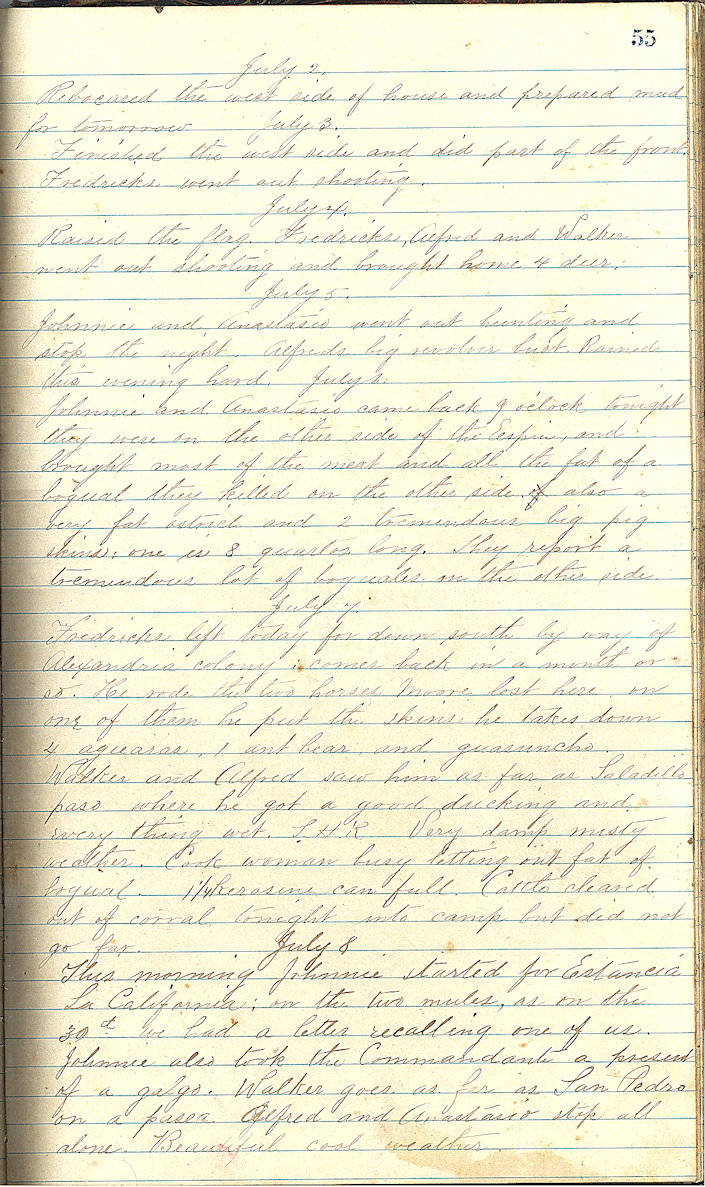 55
July 2.
Rebocared the west side of house and prepared mud
for tomorrow July 3.
Finished the west side and did part of the front.
Fredricks went out shooting.
July 4.
Raised the flag. Fredricks, Alfred and Walker
went out shooting and brought home 4 deer.
July 5.
Johnnie and Anastasio went out hunting and
stop the night. Alfreds big revolver bust. Rained
this evening hard. July 6.
Johnnie and Anastasio came back 9 oclock tonight
they were on the other side of the Espin, and
brought most of the meat and all the fat of a
bogual they killed on the other side, also a
very fat ostrich and 2 tremendous big pig
skins: one is 8 quartos long. They report a
tremendous lot of boguales on the other side.
July 7.
Fredricks left today for down south by way of
Alexandria colony; comes back in a month or
so. He rode the two horses Moore lost here, on
one of them he put the skins he takes down
4 aguaras, 1 ant bear, and guasuncho.
Walker and Alfred saw him as far as Saladillo
paso where he got a good ducking and
every thing wet. S.H.K Very damp misty
weather. Cook woman busy letting out fat of
bogual. 1 1/4 kerosine can full. Cattle cleared
out of corral tonight into camp but did not
go far. July 8
This morning Johnnie started for Estancia
La California; on the two mules, as on the
30th we had a letter recalling one of us.
Johnnie also took the Commandante a present
of a galgo. Walker goes as far as San Pedro
on a pasea. Alfred and Anastasio stop all
alone. Beautiful cool weather.